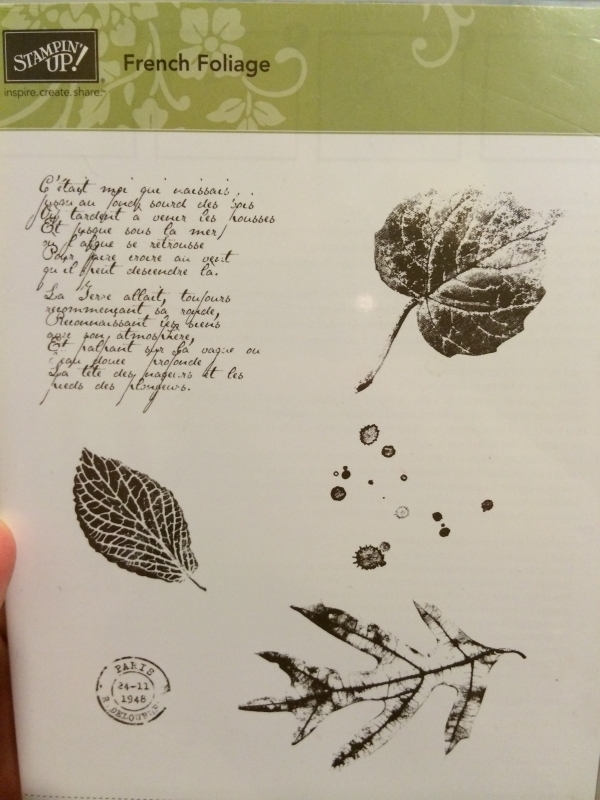 STAMPIN' UP!
inspire.create.share.
French Foliage
C'était moi qui naissais,
jusqu'au fond sourd des bois
Où tardent à venir les pousses
Et jusque sous la mer
où l'algue se retrousse
Pour faire croire au vent
qu'il peut descendre là.
La Terre allait, toujours
recommençant sa ronde,
Reconnaissant les siens
avec son atmosphère,
Et palpant sur la vague ou
l'eau douce profonde
La tête des nageurs et les
pieds des plongeurs.
PARIS
24-11
1948